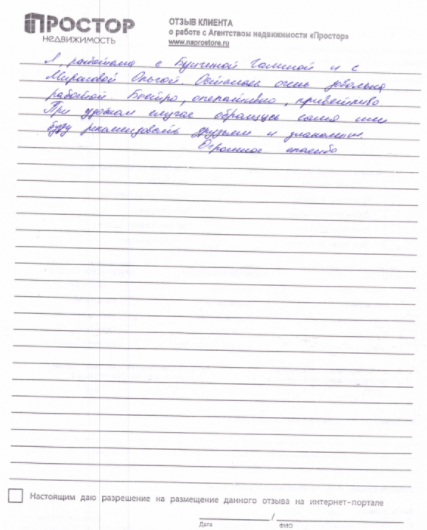 ПРОСТОР
НЕДВИЖИМОСТЬ
ОТЗЫВ КЛИЕНТА
о работе с Агентством недвижимости «Простор»
www.nacrostore.ru
Я работала с Галиной и с
Ольгой Осталась очень довольна
работой Быстро, оперативно, приветливо
При удобном случае обращусь сама или
буду рекомендовать друзьям и знакомым
Огромное спасибо
Настоящим даю разрешение на размещение данного отзыва на интернет-портале
Дата / ФИО